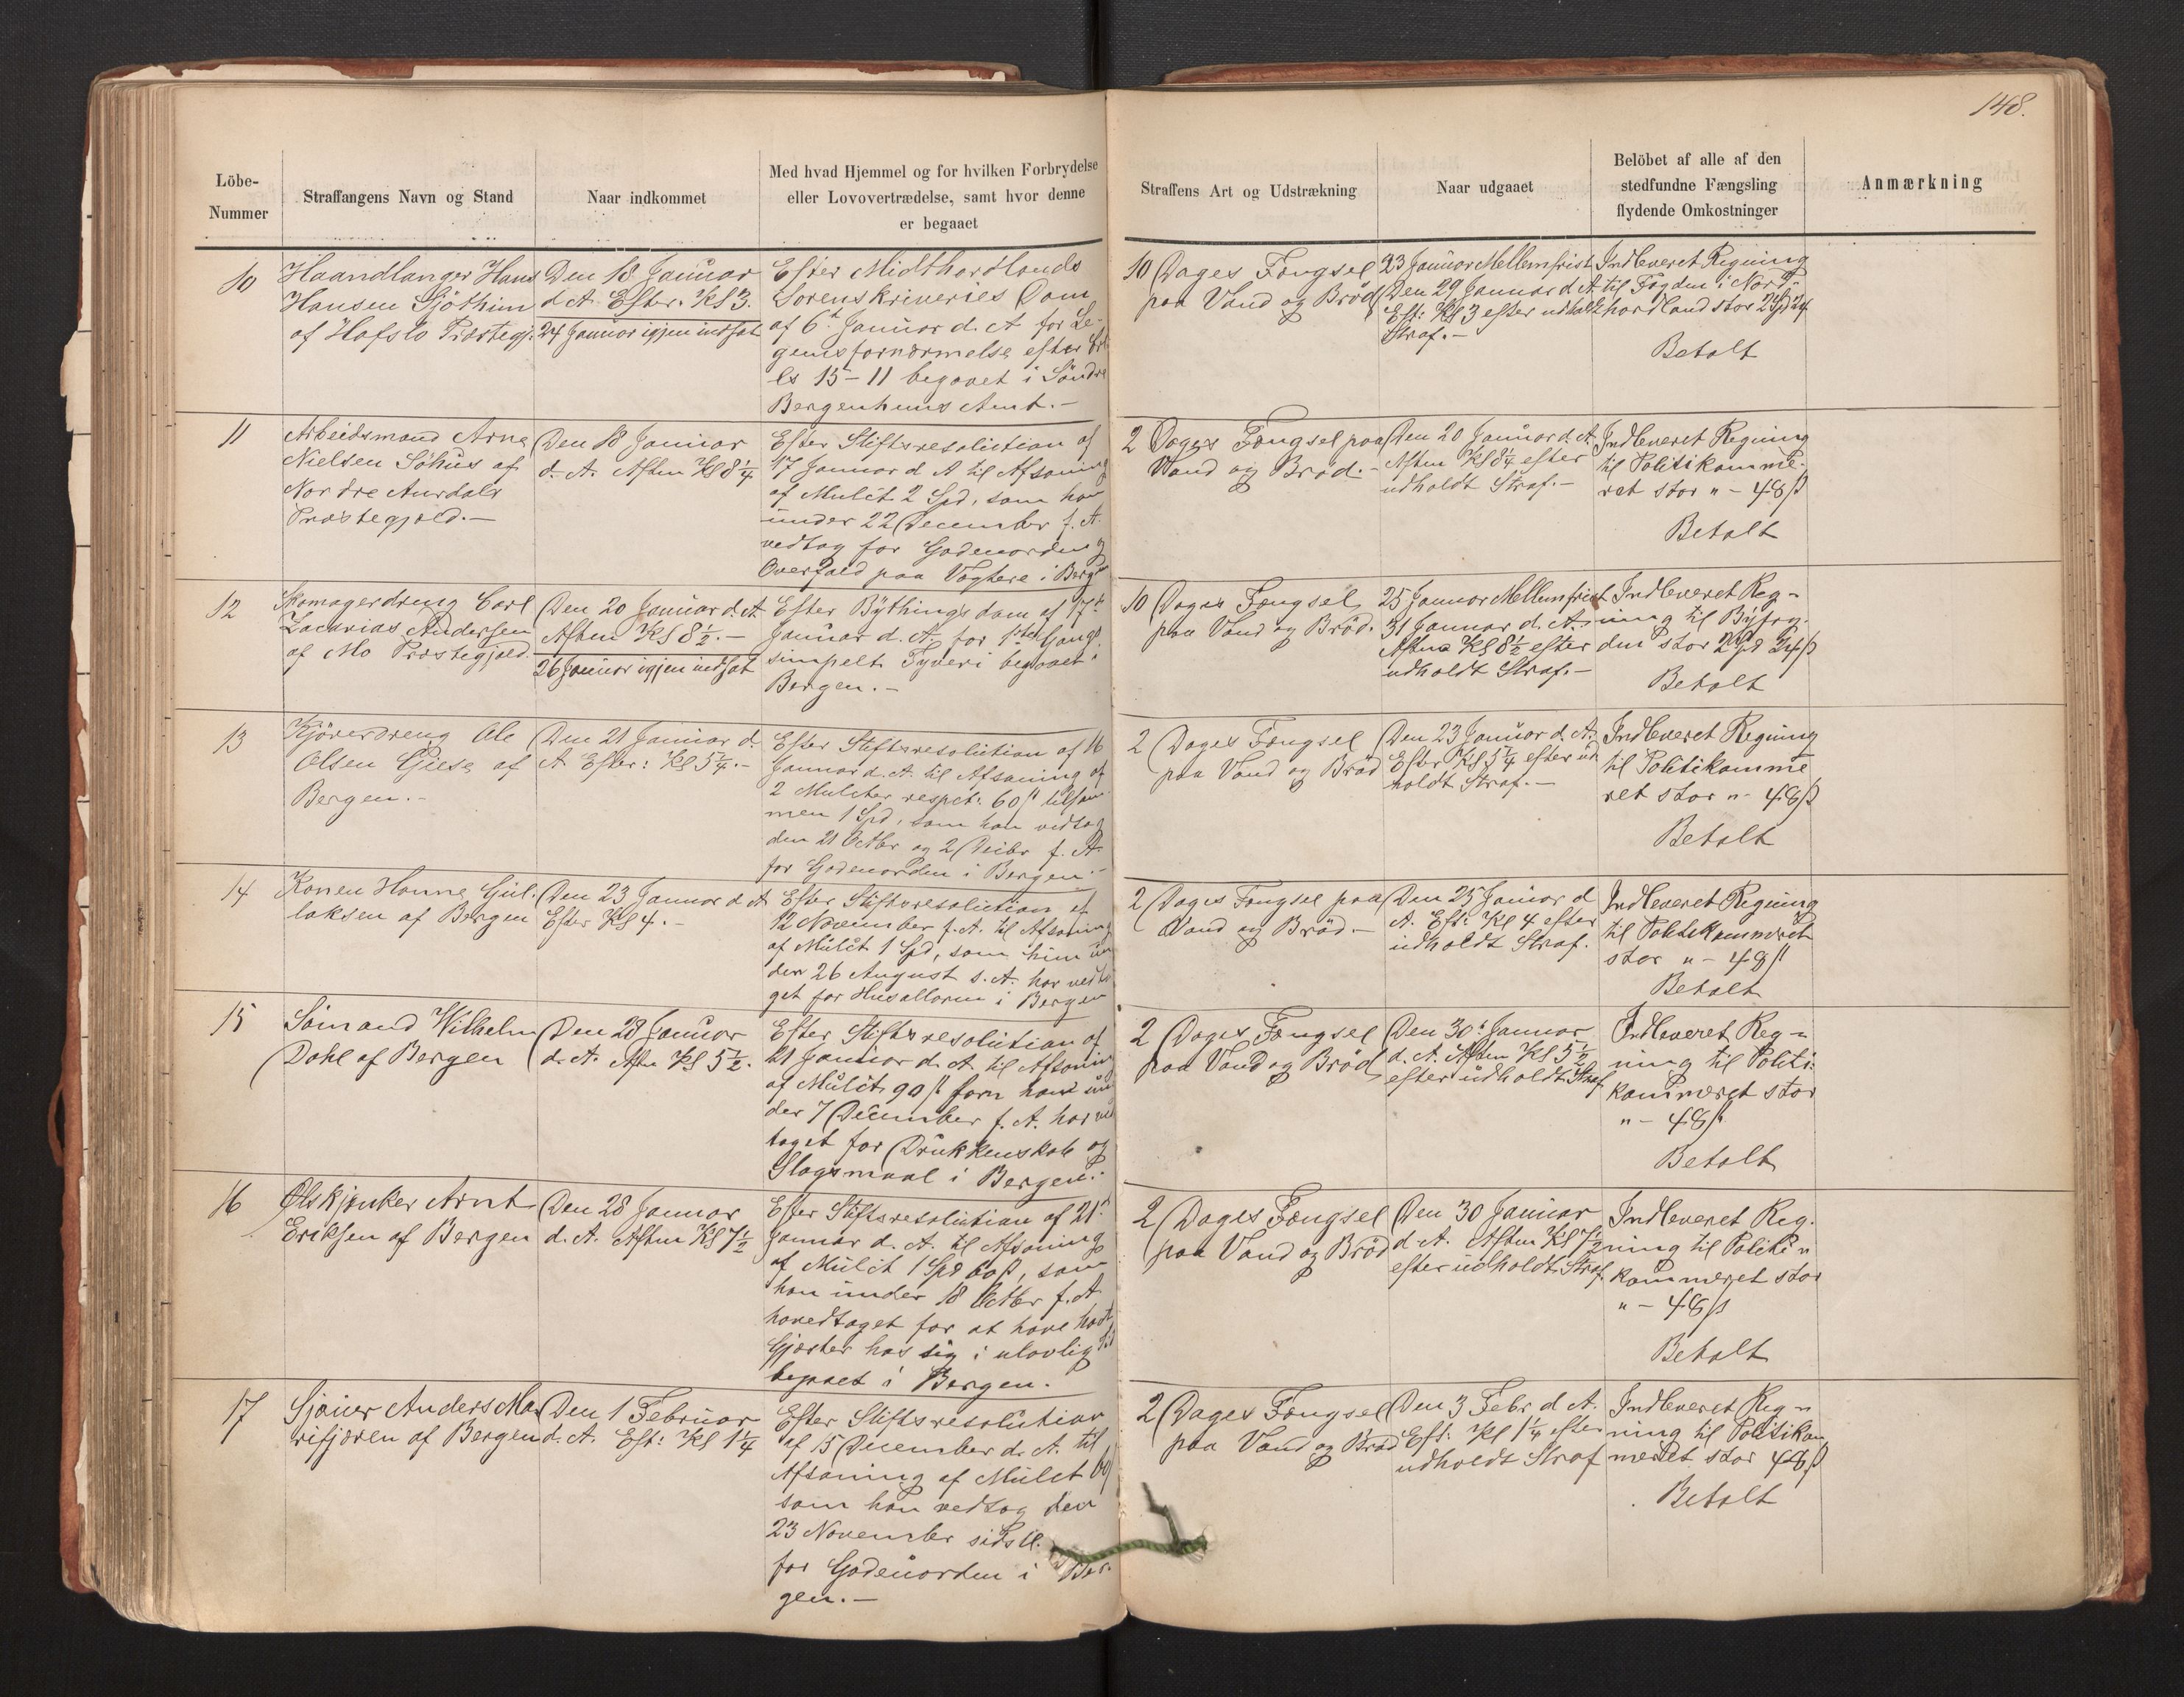 148.
Löbe-
Nummer
Straffangens Navn og Stand
Naar indkommet
Med hvad Hjemmel og for hvilken Forbrydelse
eller Lovovertrædelse, samt hvor denne
er begaaet
Straffens Art og Udstrækning
Naar udgaaet
Belöbet af alle af den
stedfundne Fængsling
flydende Omkostninger
Anmærkning
10
Haandlanger Hans
Hansen
af Hafslo Præstegj.
Den 18 Januar
d. A. Efter. Kl 3.
24 Januar igjen indsat
Efter Midthordlands
Sorenskriveries Dom
af 6t Januar d. A. for Le-
gemsfornærmelse efter
15-11 begaaet i Söndre
Bergenhuus Amt.-
10 Dages Fængsel
paa Vand og Bröd
23 Januar Mellemfrist
Den 29 Januar d. A.
Eft: Kl 3 efter udholdt
Straf.-
Indleveret Regning
til Fogden i Nord-
hordland stor 2 Spd 24
Betalt
11
Arbeidsmand Arne
Nielsen Söhus af
Nordre Aurdals
Præstegjæld.-
Den 18 Januar
d. A. Aften Kl 8 1/4
Efter Stiftsresolution af
17 Januar d. A. til Afsoning
af Mulct 2 Spd, som han
under 22 December f. A.
vedtog for Gadeuorden og
Overfald paa Vægtere i Bergen
2 Dages Fængsel paa
Vand og Bröd.-
Den 20 Januar d. A.
Aften Kl 8 1/4 efter
udholdt Straf.-
Indleveret Regning
til Politikamme-
ret stor " - 48 ß
Betalt
12
Skomagerdreng Carl
Zacarias Andersen
af Mo Præstegjæld.
Den 20 Januar d. A.
Aften Kl 8 1/2.-
26 Januar igjen indsat
Efter Bythingsdom af 17de
Januar d. A. for 1ste Gangs
simpelt Tyveri begaaet i
Bergen.-
10 Dages Fængsel
paa Vand og Bröd.
25 Januar Mellemfrist
31 Januar d. A.
Aften Kl 8 1/2 efter
udholdt Straf.-
Indleveret Reg-
ning til Byfog-
den stor 2 Spd 24 ß
Betalt
13
Kjöredreng Ole
Olsen Giese af
Bergen.-
Den 21 Januar d.
A. Efter: Kl 5 1/4.-
Efter Stiftsresolution af 16
Januar d. A. til Afsoning af
2 Mulcter respct. 60 ß tilsam-
men 1 Spd, som han vedtog
den 21 Octbr og 2 Decbr f. A.
for Gadeuorden i Bergen.-
2 Dages Fængsel
paa Vand og Bröd
Den 23 Januar d. A.
Efter Kl 5 1/4 efter ud
holdt Straf.-
Indleveret Regning
til Politikamme
ret stor " - 48 ß
Betalt
14
Konen Hanne Gul-
laksen af Bergen
Den 23 Januar d. A.
Efter Kl 4.-
Efter Stiftsresolution af
12 November f. A. til Afsoning
af Mulct 1 Spd, som hun un
der 26 August s. A. har vedta
get for Husallarm i Bergen
2 Dages Fængsel paa
Vand og Bröd.-
Den 25 Januar d.
A. Eft: Kl 4 efter
udholdt Straf.
Indleveret Regning
til Politikammeret
stor " - 48 ß
Betalt
15
Sömand Wilhelm
Dahl af Bergen
Den 28 Januar
d. A. Aften Kl 5 1/2.
Efter Stiftsresolution af
21 Januar d. A. til Afsoning
af Mulct 90 ß som han un
der 7 December f. A. har ved
taget for Drukkenskab og
Slagsmaal i Bergen.
2 Dages Fængsel
paa Vand og Bröd
Den 30 Januar
d. A. Aften Kl 5 1/2
efter udholdt Straf
Indleveret Reg-
ning til Politi-
kammeret stor
" - 48 ß
Betalt
16
Ölskjænker Arnt
Eriksen af Bergen
Den 28 Januar
d. A. Aften Kl 7 1/2
Efter Stiftsresolution af 21
Januar d. A. til Afsoning
af Mulct 1 Spd 60 ß, som
han under 18 Octbr f. A.
har vedtaget for at have havt
Gjæster hos sig i ulovlig Tid
begaaet i Bergen.
2 Dages Fængsel
paa Vand og Bröd
Den 30 Januar
d. A. Aften Kl 7 1/2
efter udholdt Straf.
Indleveret Reg-
ning til Politi-
kammeret stor
" - 48 ß
Betalt
17
Sjouer Anders
af Bergen
Den 1 Februar
d. A. Eft: Kl 1 1/4
Efter Stiftsresolution
af 15 December d. A. til
Afsoning af Mulct 60 ß
som han vedtog den
23 November sidstl.
for Gadeuorden i Ber-
gen.-
2 Dages Fængsel
paa Vand og Bröd
Den 3 Febr d. A.
Eft: Kl 1 1/4 efter
udholdt Straf
Indleveret Reg-
ning til Politikam
meret stor 48 ß
Betalt